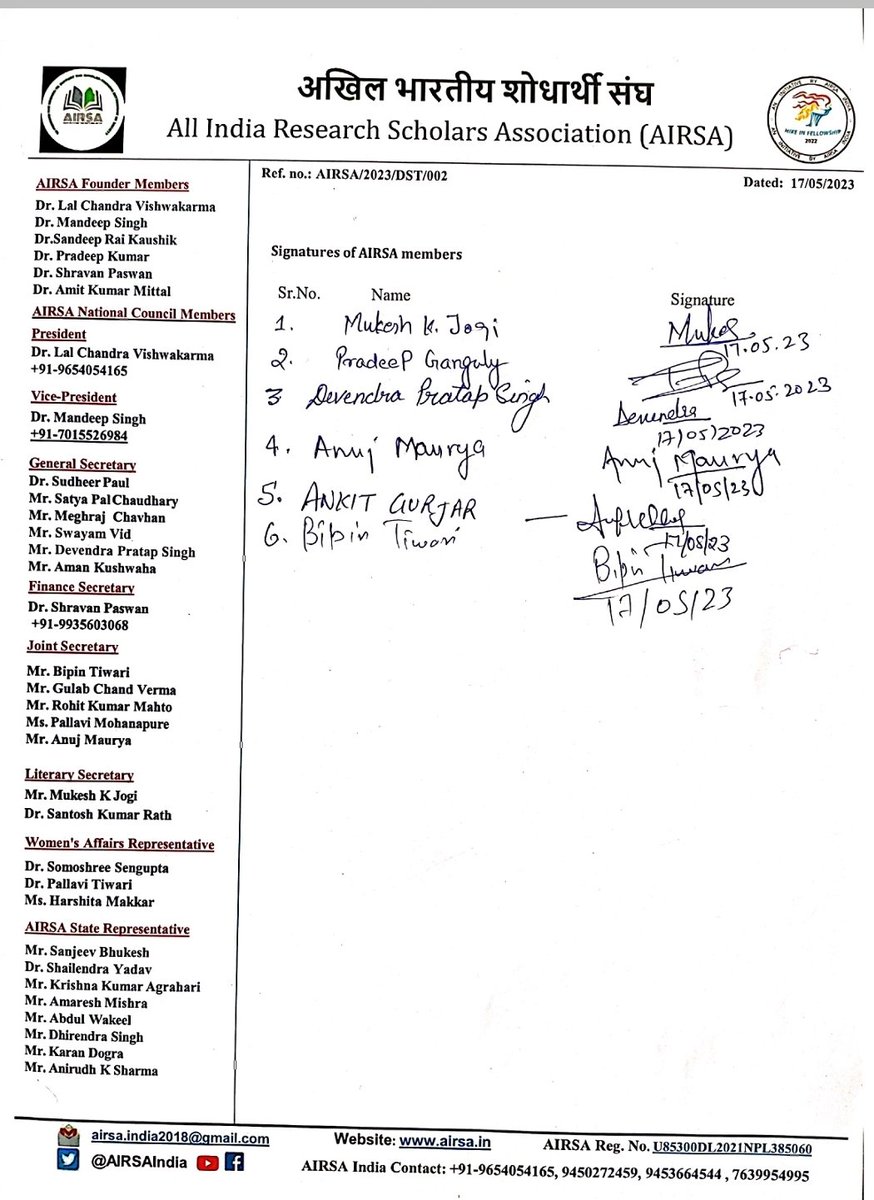 AIRSA
अखिल भारतीय शोधार्थी संघ
All India Research Scholars Association (AIRSA)
HIRE IN FELLOWSHIP
2022
AIRSA Founder Members
Dr. Lal Chandra Vishwakarma
Dr. Mandeep Singh
Dr.Sandeep Rai Kaushik
Dr. Pradeep Kumar
Dr. Shravan Paswan
Dr. Amit Kumar Mittal
AIRSA National Council Members
President
Dr. Lal Chandra Vishwakarma
+91-9654054165
Vice-President
Dr. Mandeep Singh
+91-7015526984
General Secretary
Dr. Sudheer Paul
Mr. Satya Pal Chaudhary
Mr. Meghraj Chavhan
Mr. Swayam Vid
Mr. Devendra Pratap Singh
Mr. Aman Kushwaha
Finance Secretary
Dr. Shravan Paswan
+91-9935603068
Joint Secretary
Mr. Bipin Tiwari
Mr. Gulab Chand Verma
Mr. Rohit Kumar Mahto
Ms. Pallavi Mohanapure
Mr. Anuj Maurya
Literary Secretary
Mr. Mukesh K Jogi
Dr. Santosh Kumar Rath
Women's Affairs Representative
Dr. Somoshree Sengupta
Dr. Pallavi Tiwari
Ms. Harshita Makkar
AIRSA State Representative
Mr. Sanjeev Bhukesh
Dr. Shailendra Yadav
Mr. Krishna Kumar Agrahari
Mr. Amaresh Mishra
Mr. Abdul Wakeel
Mr. Dhirendra Singh
Mr. Karan Dogra
Mr. Anirudh K Sharma
Ref. no.: AIRSA/2023/DST/002
Dated: 17/05/2023
Signatures of AIRSA members
Sr.No. Name Signature
1. Mukesh K. Jogi Mukesh
17.05.23
2. Pradeep Ganguly
17.05.2023
3 Devendra Pratap Singh Devendra
17/05/2023
4. Anuj Maurya Anuj Maurya
17/05/23
5. ANKIT GURJAR
17/05/23
6. Bipin Tiwari Bipin Tiwari
17/05/23
airsa.india2018@gmail.com
@AIRSAIndia
Website: www.airsa.in
AIRSA Reg. No. U85300DL2021NPL385060
AIRSA India Contact: +91-9654054165, 9450272459, 9453664544 , 7639954995